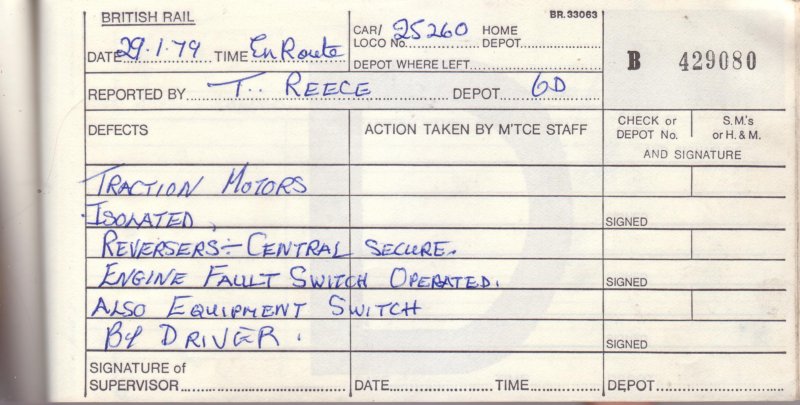 BRITISH RAIL
BR.33063
DATE 29.1.79 TIME En Route
CAR/ LOCO No. 25260 HOME DEPOT
DEPOT WHERE LEFT
B 429080
REPORTED BY T.. REECE DEPOT 6D
DEFECTS
ACTION TAKEN BY M'TCE STAFF
CHECK or DEPOT No.
S.M.'s or H. & M.
AND SIGNATURE
TRACTION MOTORS
ISOLATED,
SIGNED
REVERSERS:- CENTRAL SECURE.
ENGINE FAULT SWITCH OPERATED.
SIGNED
ALSO EQUIPMENT SWITCH
By DRIVER.
SIGNED
SIGNATURE of
SUPERVISOR DATE TIME DEPOT